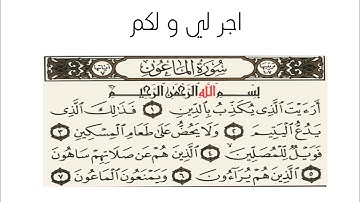 اجر لي و لكم
سُورَةُ الْمَاعُونِ
بِسْمِ اللَّهِ الرَّحْمَٰنِ الرَّحِيمِ
أَرَءَيْتَ الَّذِي يُكَذِّبُ بِالدِّينِ ١ فَذَٰلِكَ الَّذِي
يَدُعُّ الْيَتِيمَ ٢ وَلَا يَحُضُّ عَلَىٰ طَعَامِ الْمِسْكِينِ ٣
فَوَيْلٌ لِّلْمُصَلِّينَ ٤ الَّذِينَ هُمْ عَن صَلَاتِهِمْ سَاهُونَ
٥ الَّذِينَ هُمْ يُرَآءُونَ ٦ وَيَمْنَعُونَ الْمَاعُونَ ٧